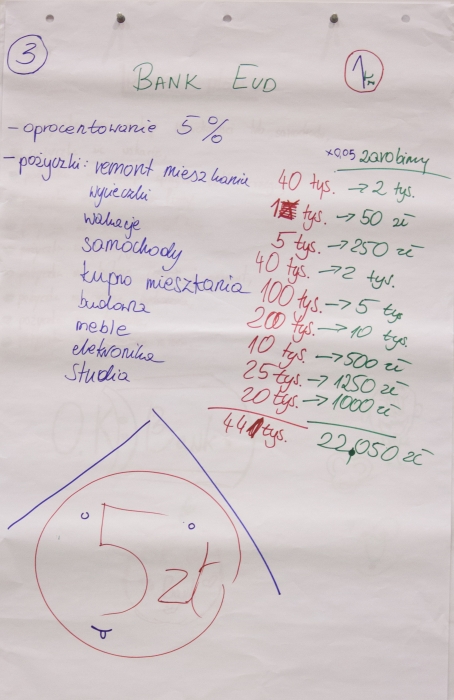 3
BANK EUD
1 zł
- oprocentowanie 5%
x0,05 zarobimy
- pożyczki: remont mieszkania 40 tys. → 2 tys.
wycieczki 1 tys. → 50 zł
wakacje 5 tys. → 250 zł
samochody 40 tys. → 2 tys.
kupno mieszkania 100 tys. → 5 tys
budowa 200 tys. → 10 tys.
meble 10 tys. → 500 zł
elektronika 25 tys. → 1250 zł
studia 20 tys. → 1000 zł
441 tys. 22,050 zł
5 zł